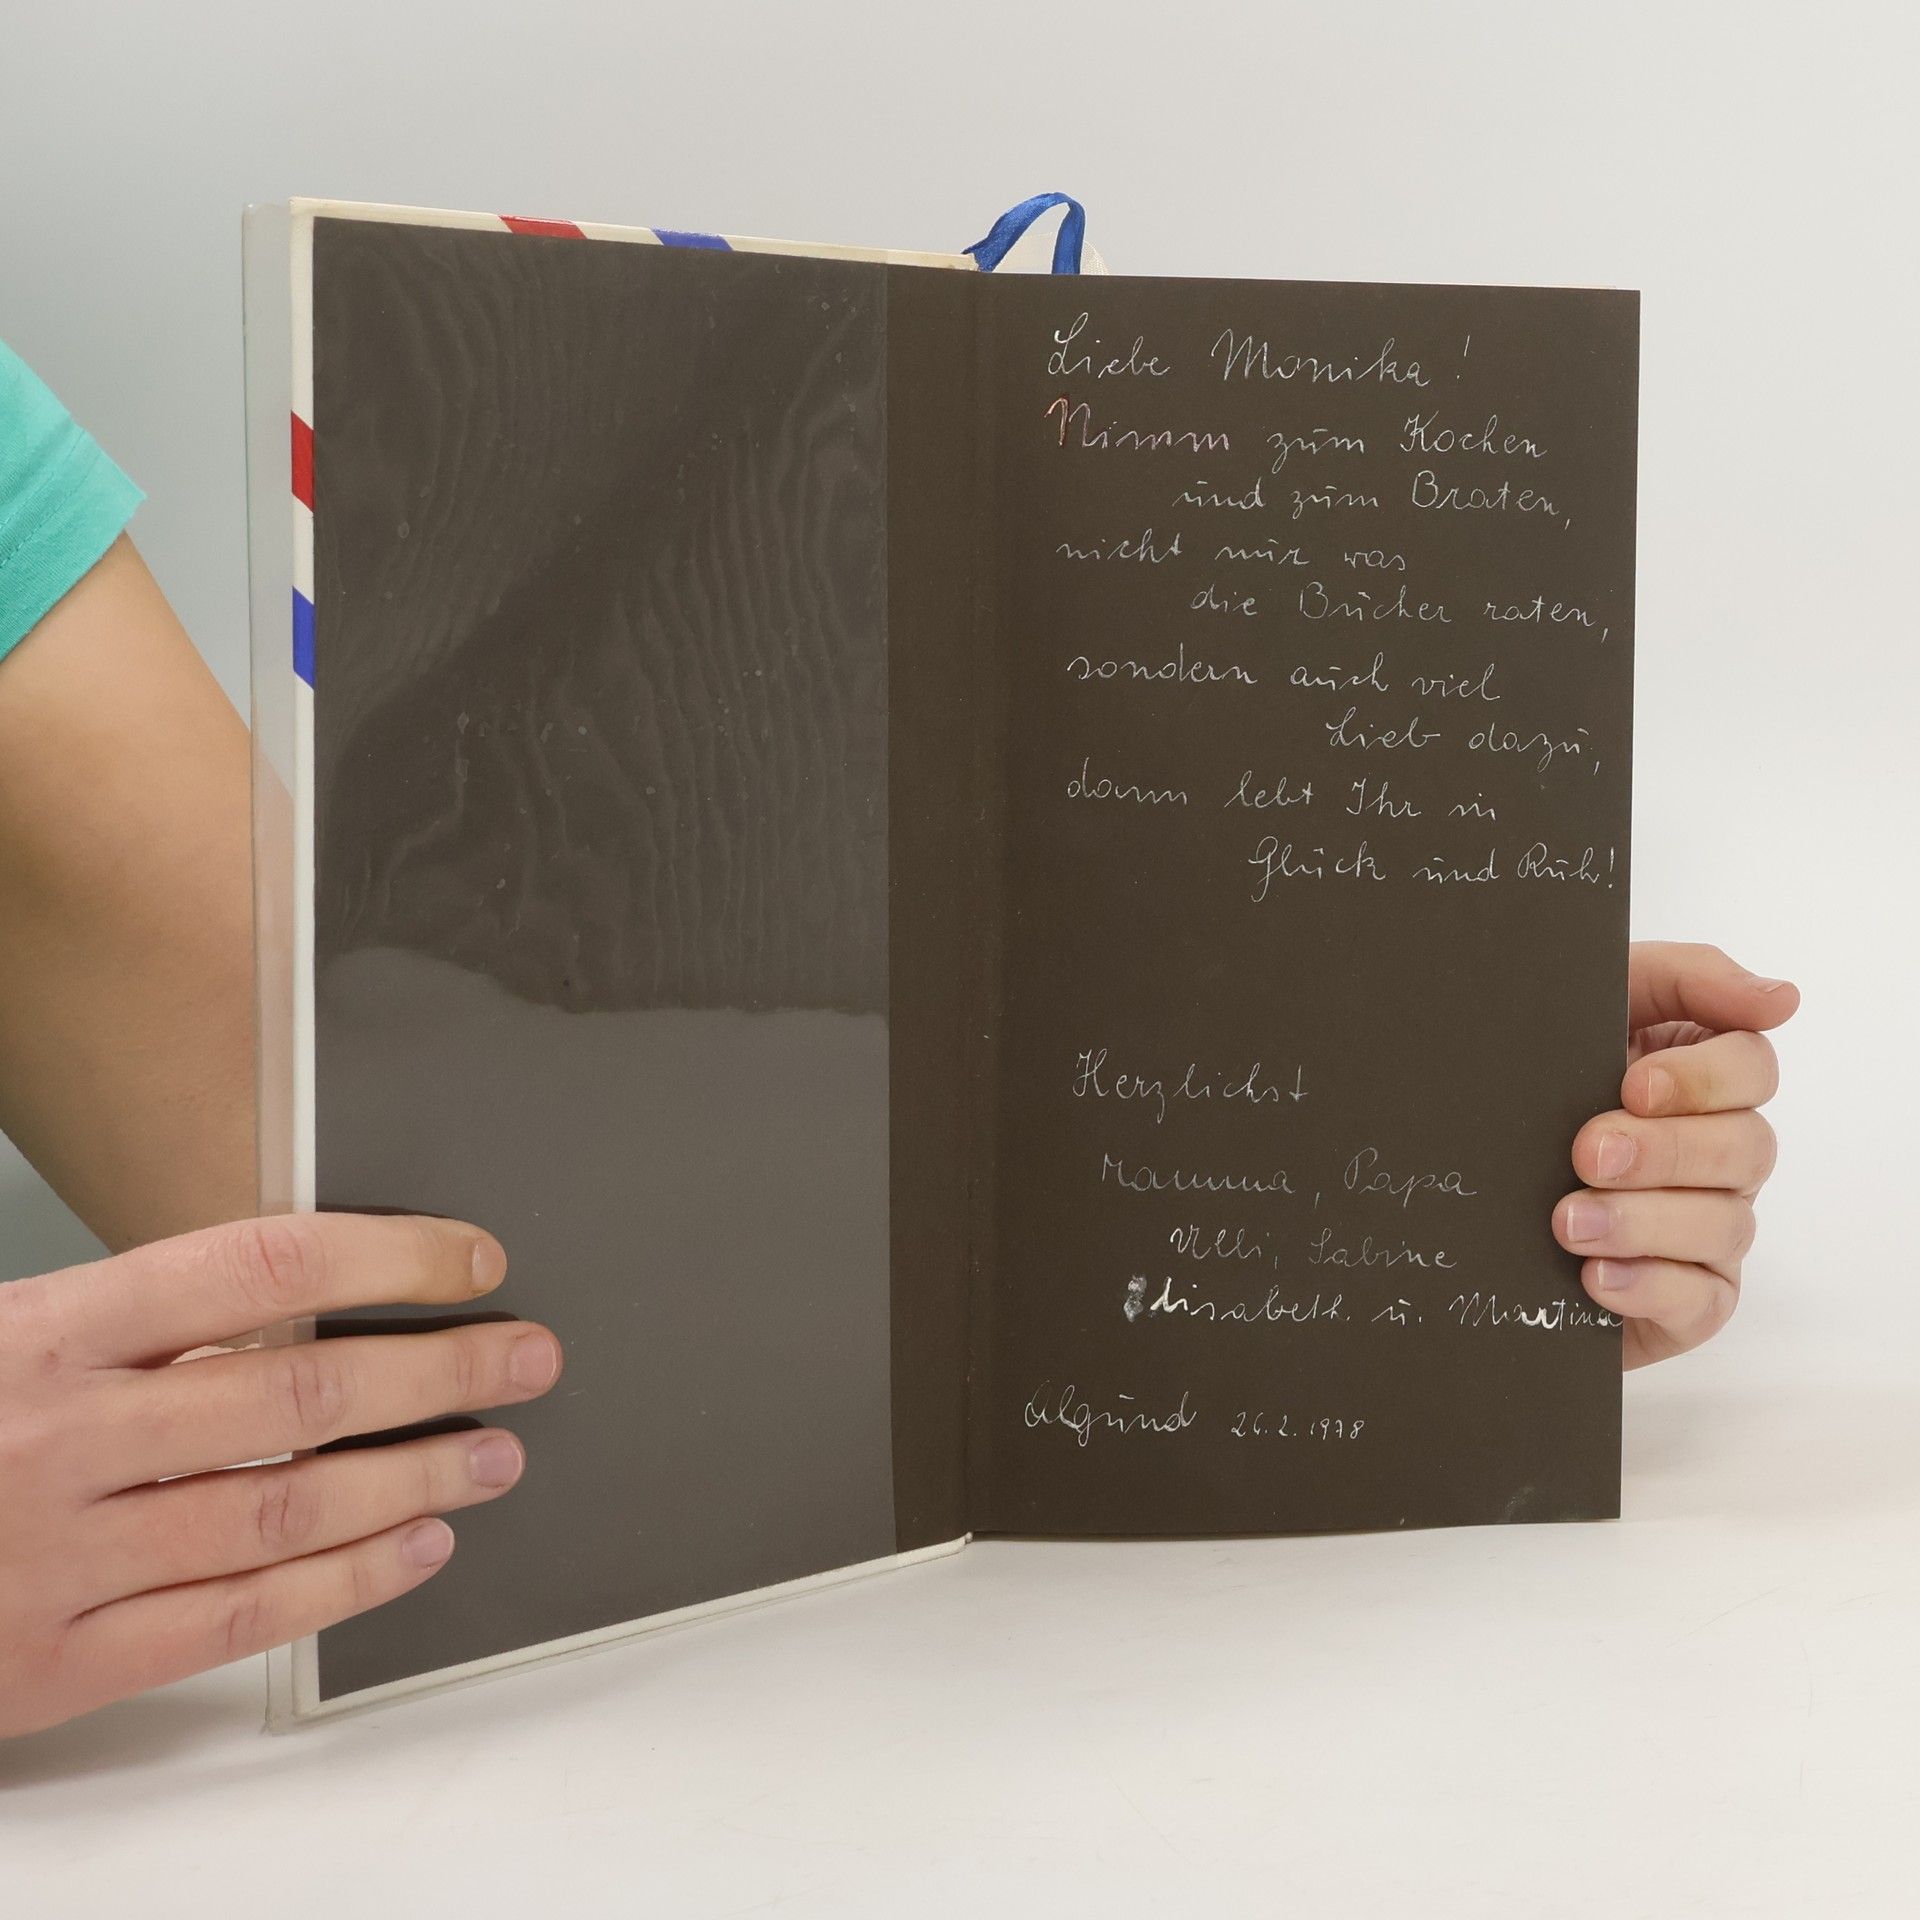 Liebe Monika!
Nimm zum Kochen
und zum Braten,
nicht nur was
die Bücher raten,
sondern auch viel
Lieb dazu,
dann lebt Ihr in
Glück und Ruh!
Herzlichst
Mamma, Papa
Ulli, Sabine
Elisabeth u. Martina
Algund 26.2.1978